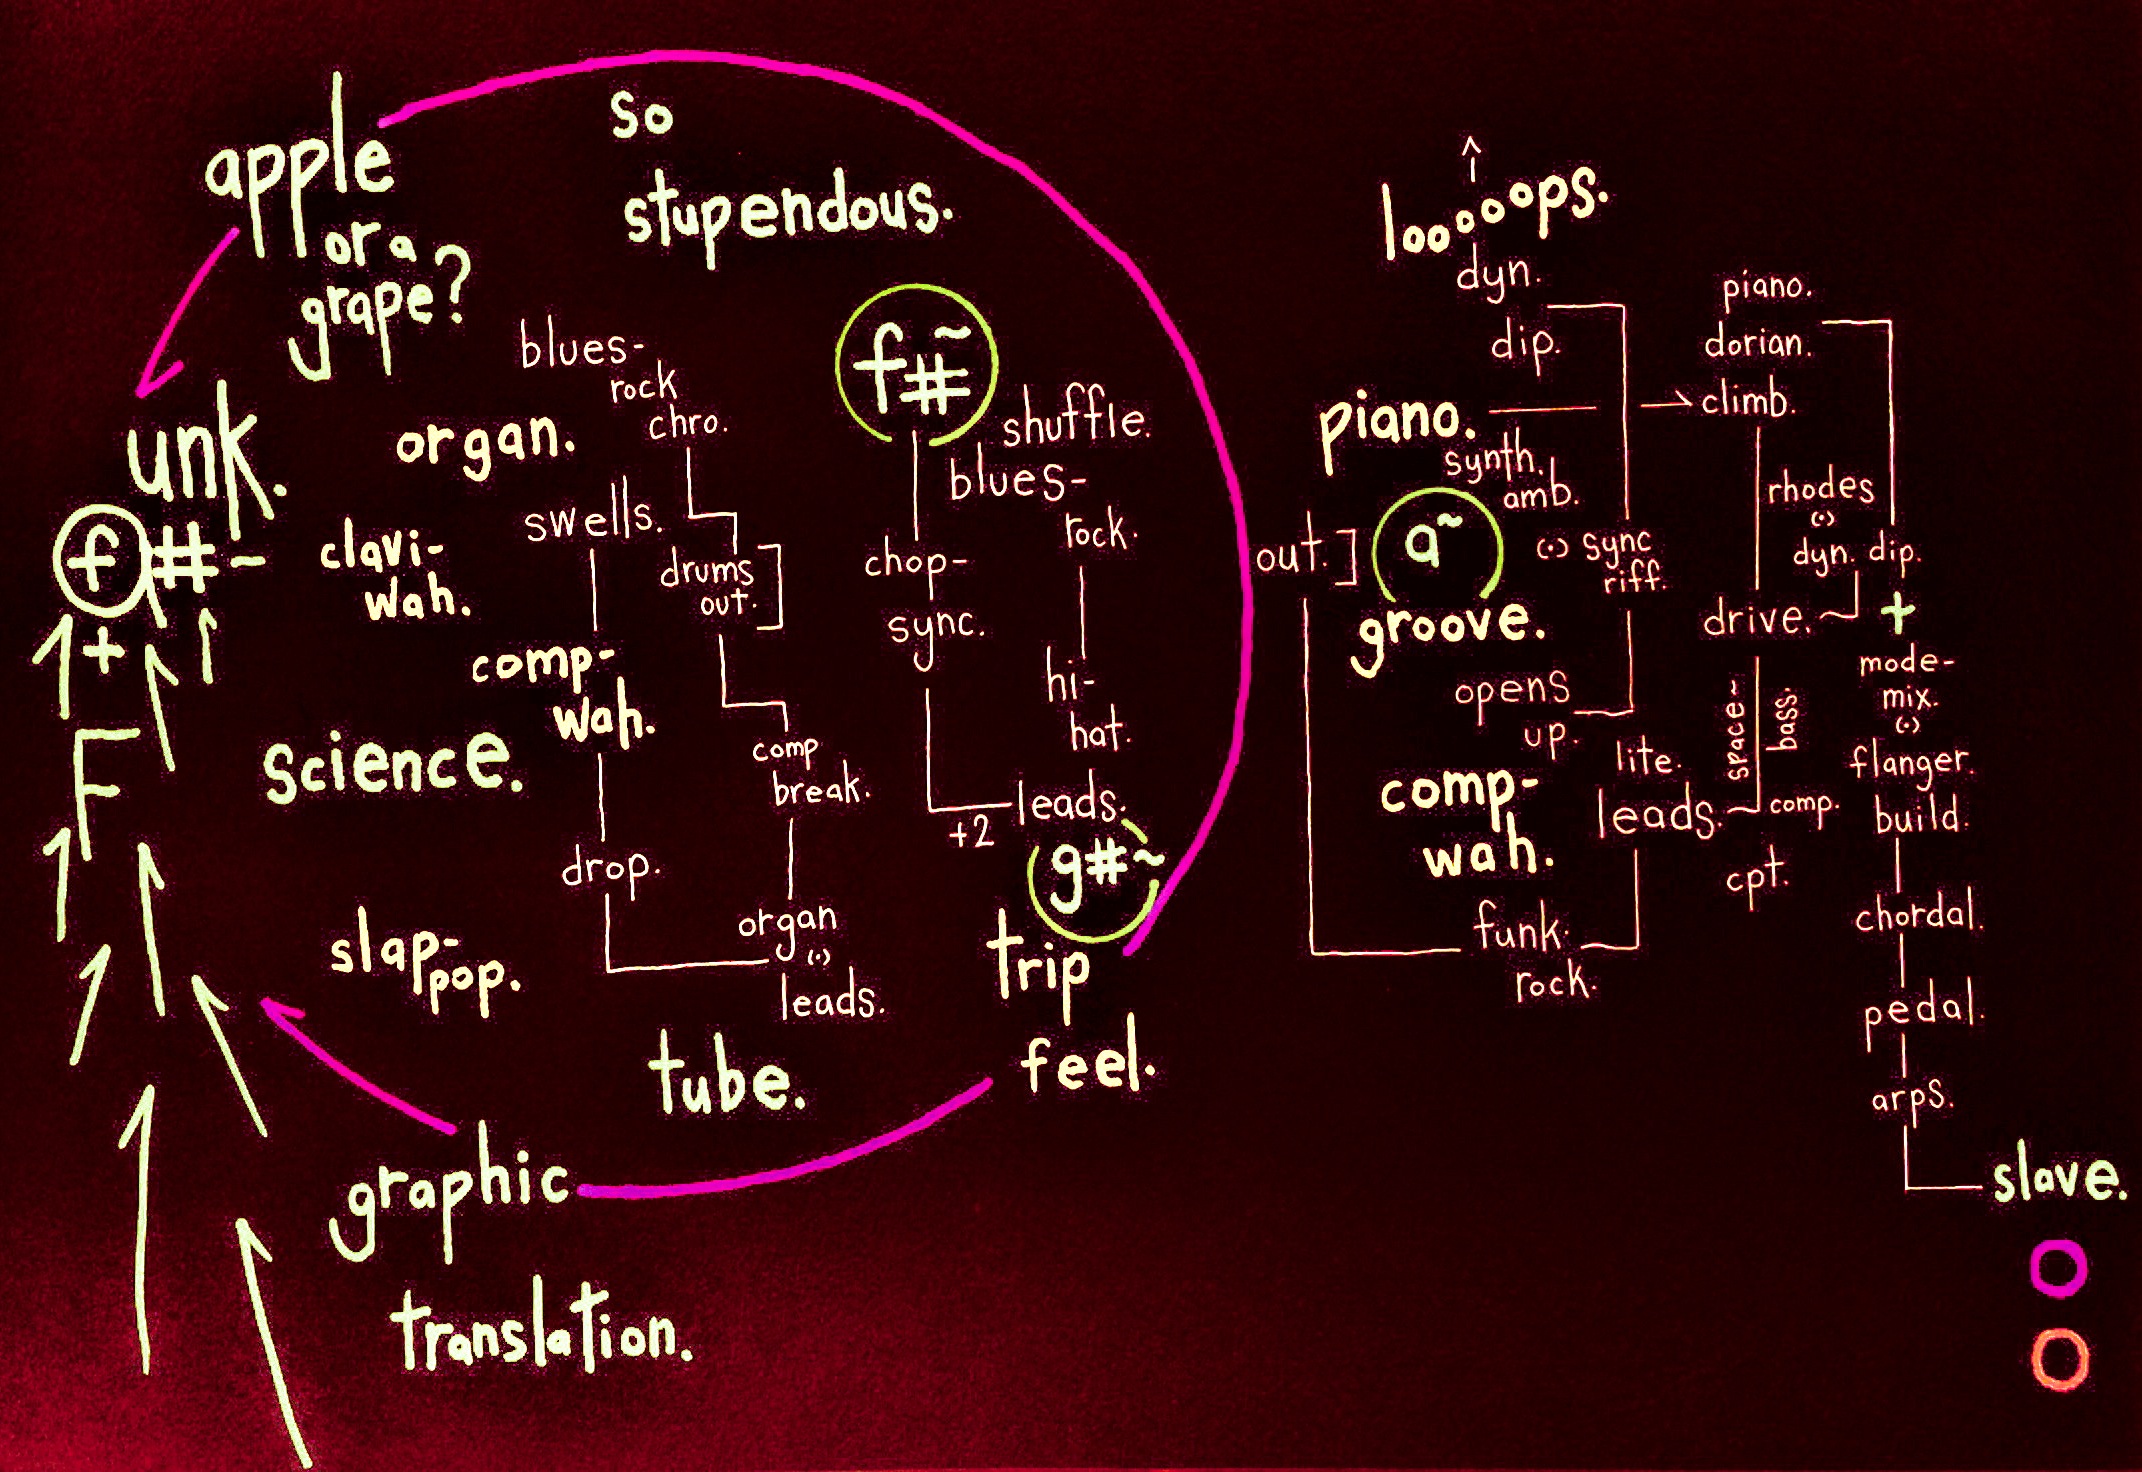 apple
or a
grape?
so
stupendous.
unk.
f#~
+
F
organ.
clavi-
wah.
science.
slap-
pop.
graphic
translation.
tube.
blues-
rock
chro.
swells.
drums
out.]
comp-
wah.
comp
break.
drop.
organ
(·)
leads.
f#~
shuffle.
blues-
rock.
chop-
sync.
hi-
hat.
leads.
+2
g#~
trip
feel.
looooops.
dyn.
dip.
piano.
synth.
amb.
out.]
a~
groove.
(·) sync
riff.
opens
up.
comp-
wah.
lite.
leads.~
funk.
rock.
piano.
dorian.
climb.
rhodes
(·)
dyn. dip.
drive.~
+
space~
bass.
comp.
cpt.
mode-
mix.
(·)
flanger.
build.
chordal.
pedal.
arps.
slave.